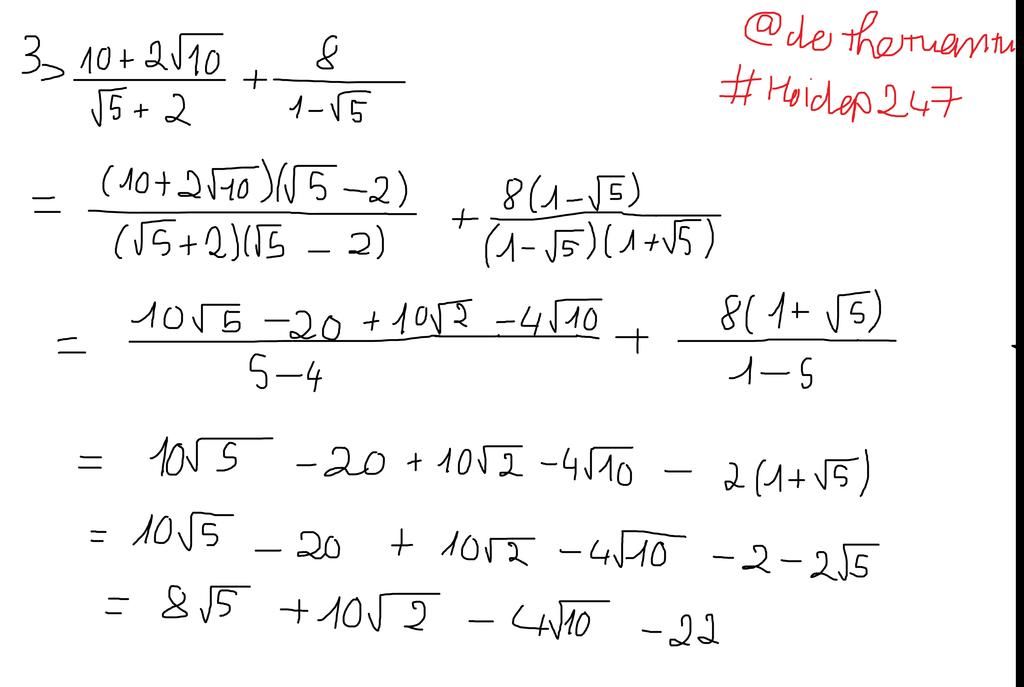 3> (10+2√10)/(√5+2) + 8/(1-√5)
@dethetuantu
#Hoidap247
= (10+2√10)(√5-2)/(√5+2)(√5-2) + 8(1-√5)/(1-√5)(1+√5)
= (10√5-20+10√2-4√10)/(5-4) + 8(1+√5)/(1-5)
= 10√5 -20+10√2-4√10 - 2(1+√5)
= 10√5 -20 + 10√2 -4√10 -2-2√5
= 8√5 +10√2 -4√10 -22